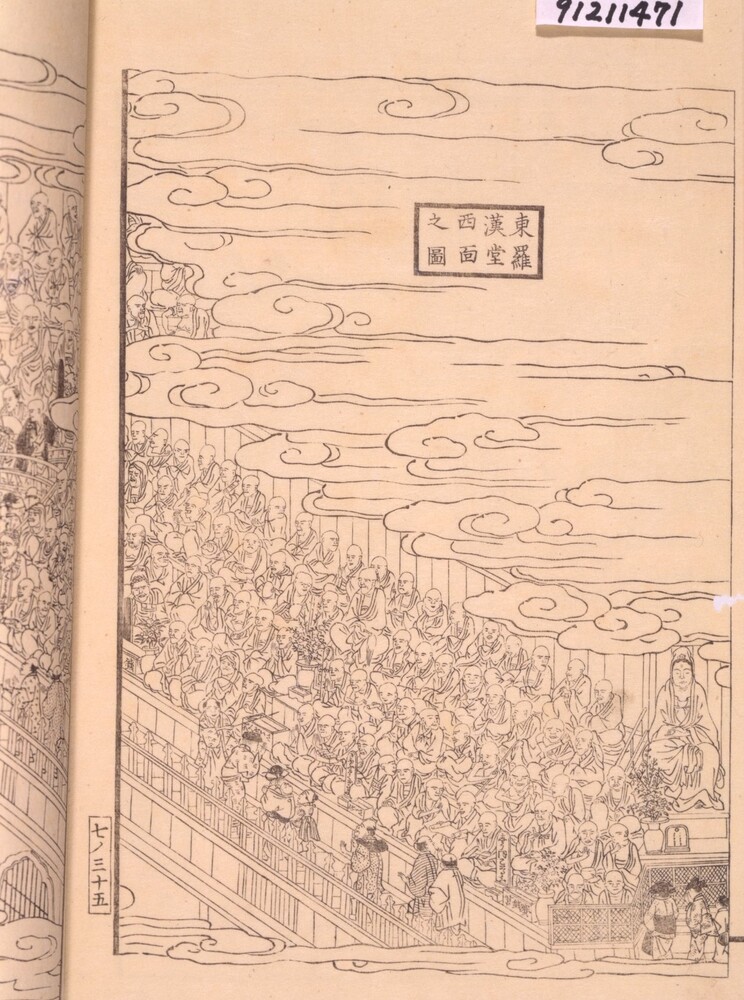 91211471
東羅
漢堂
西面
之圖
七ノ三十五